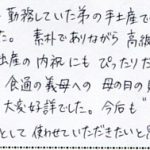 勤務していた弟の手土産で
た。 素朴でありながら 高級
出産の内祝にもぴったりだ
食通の義母への 母の日の
大変好評でした。今後も"
として 使わせていただきたいと